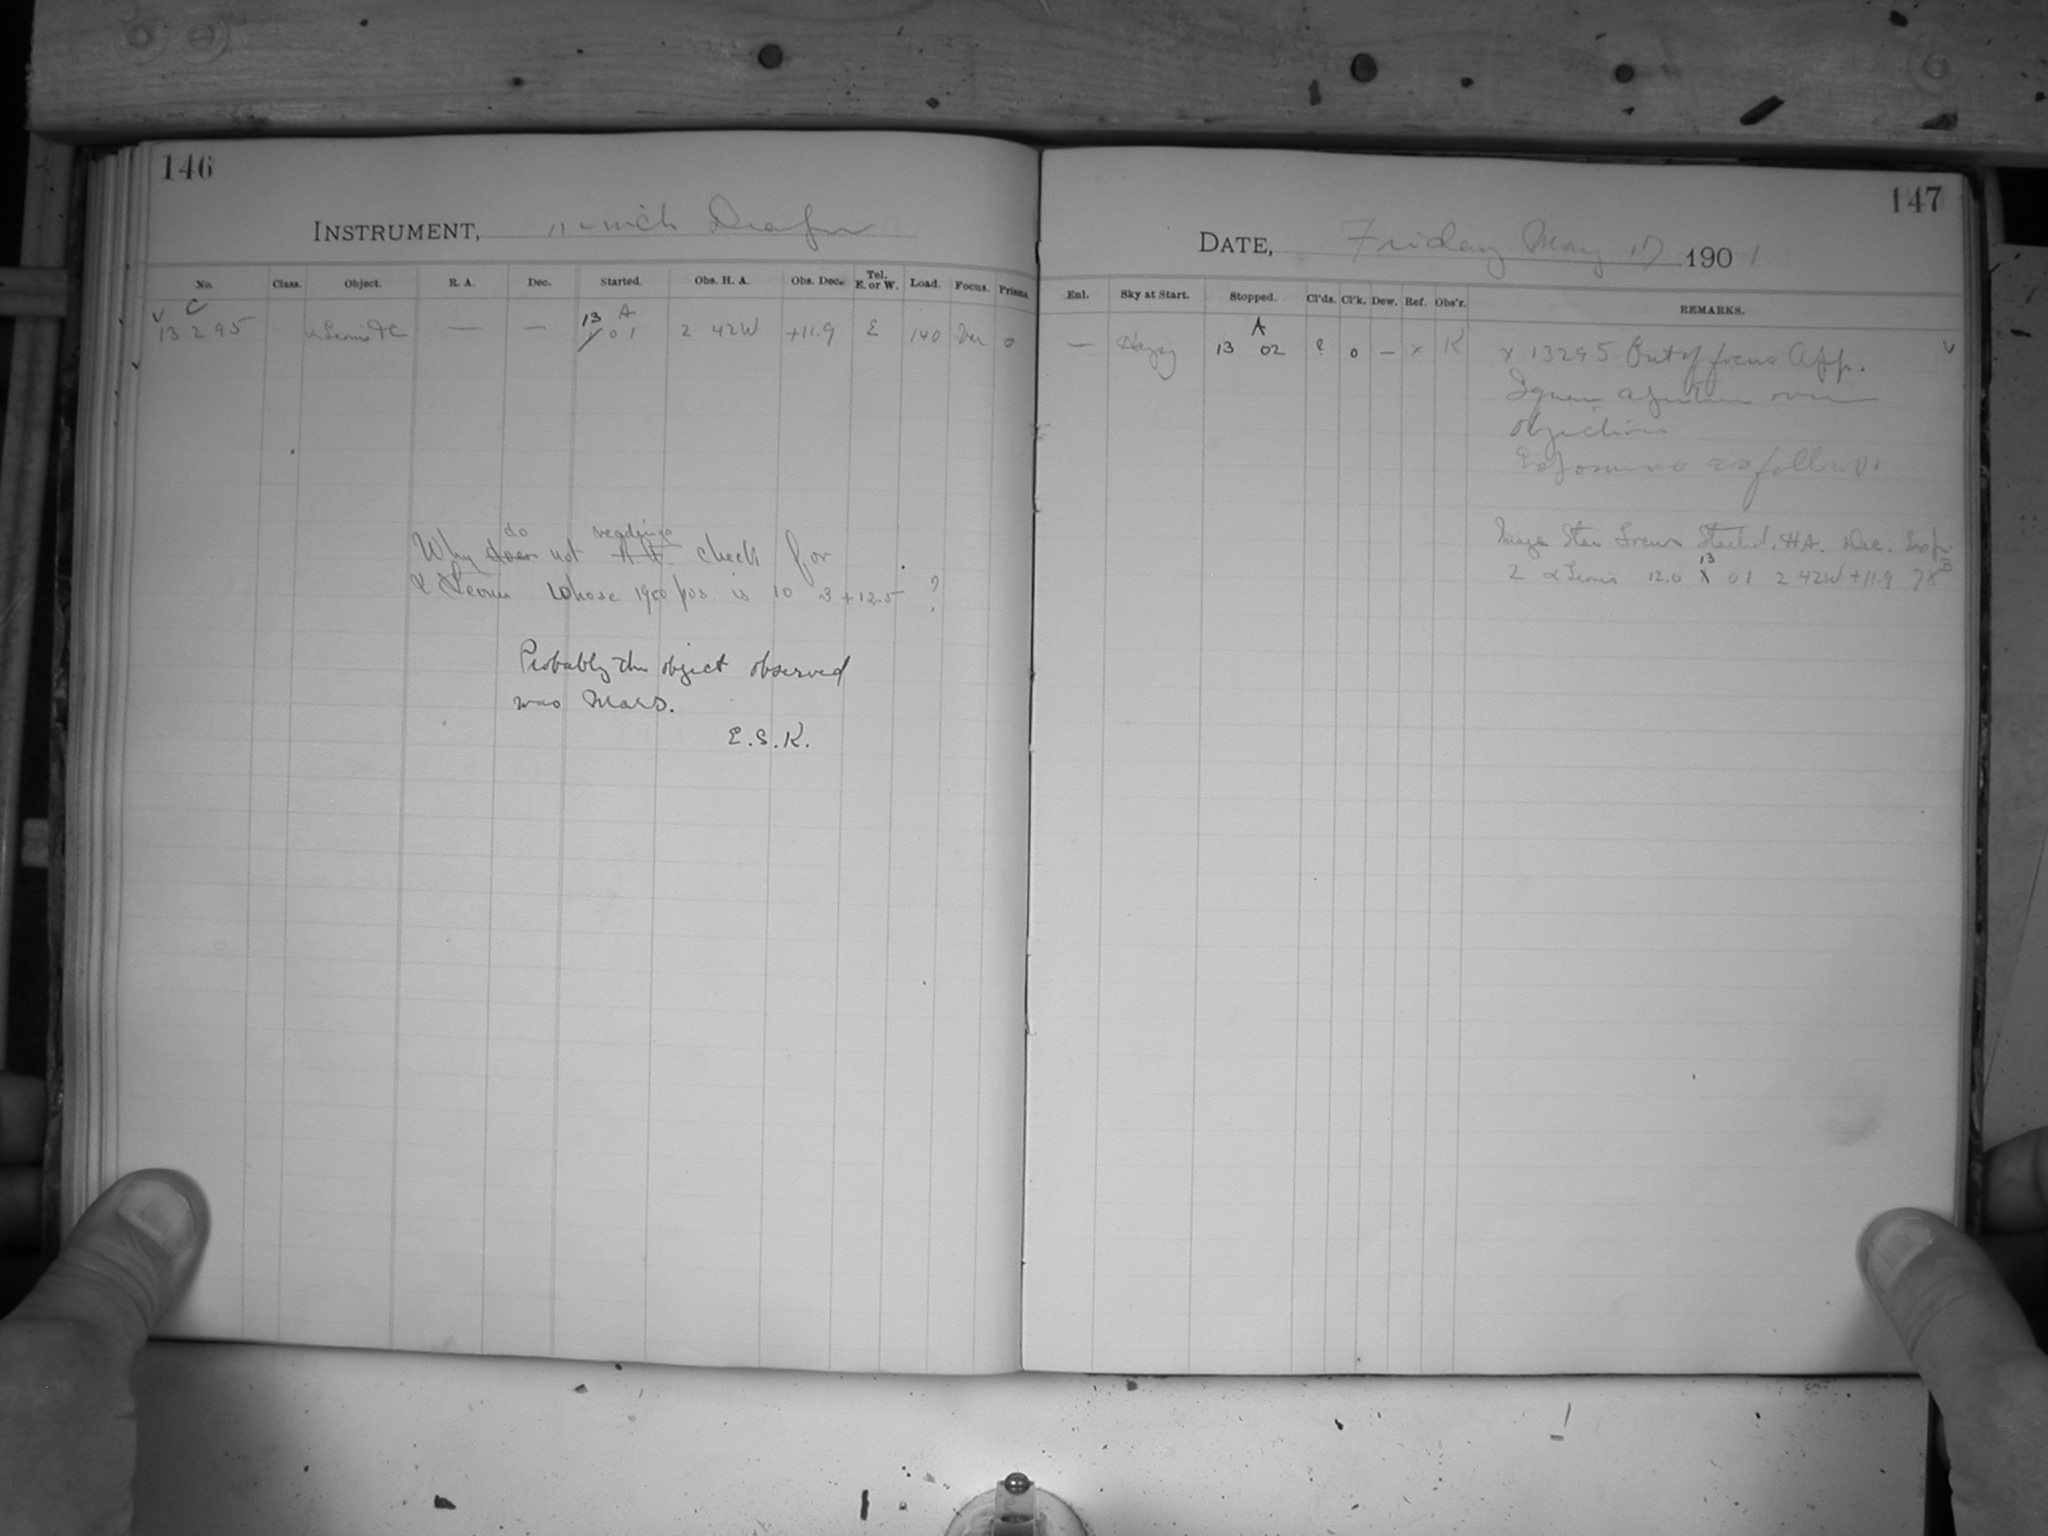 146
INSTRUMENT, 11-inch Draper
No. Class. Object. R. A. Dec. Started. Obs. H. A. Obs. Dec. Tel. E. or W. Load. Focus. Prisms.
C 13 A
13295 α Leonis — — 01 2 42W +11.9 E 140 0
do readings
Why does not check for
α Leonis whose 1900 pos. is 10 3 + 12.5 ?
Probably the object observed
was Mars.
E. S. K.
147
DATE, Friday May 17 1901
Enl. Sky at Start. Stopped. Cl'ds. Cl'k. Dew. Ref. Obs'r. REMARKS.
A
— Hazy 13 02 ? 0 — x K x 13295 Out of focus App.
Square aperture over
objective
Exposures as follows.
Image Star Screw Started. H A. Dec. Exp
13
2 α Leonis 12.0 X 01 2 42W +11.9 78